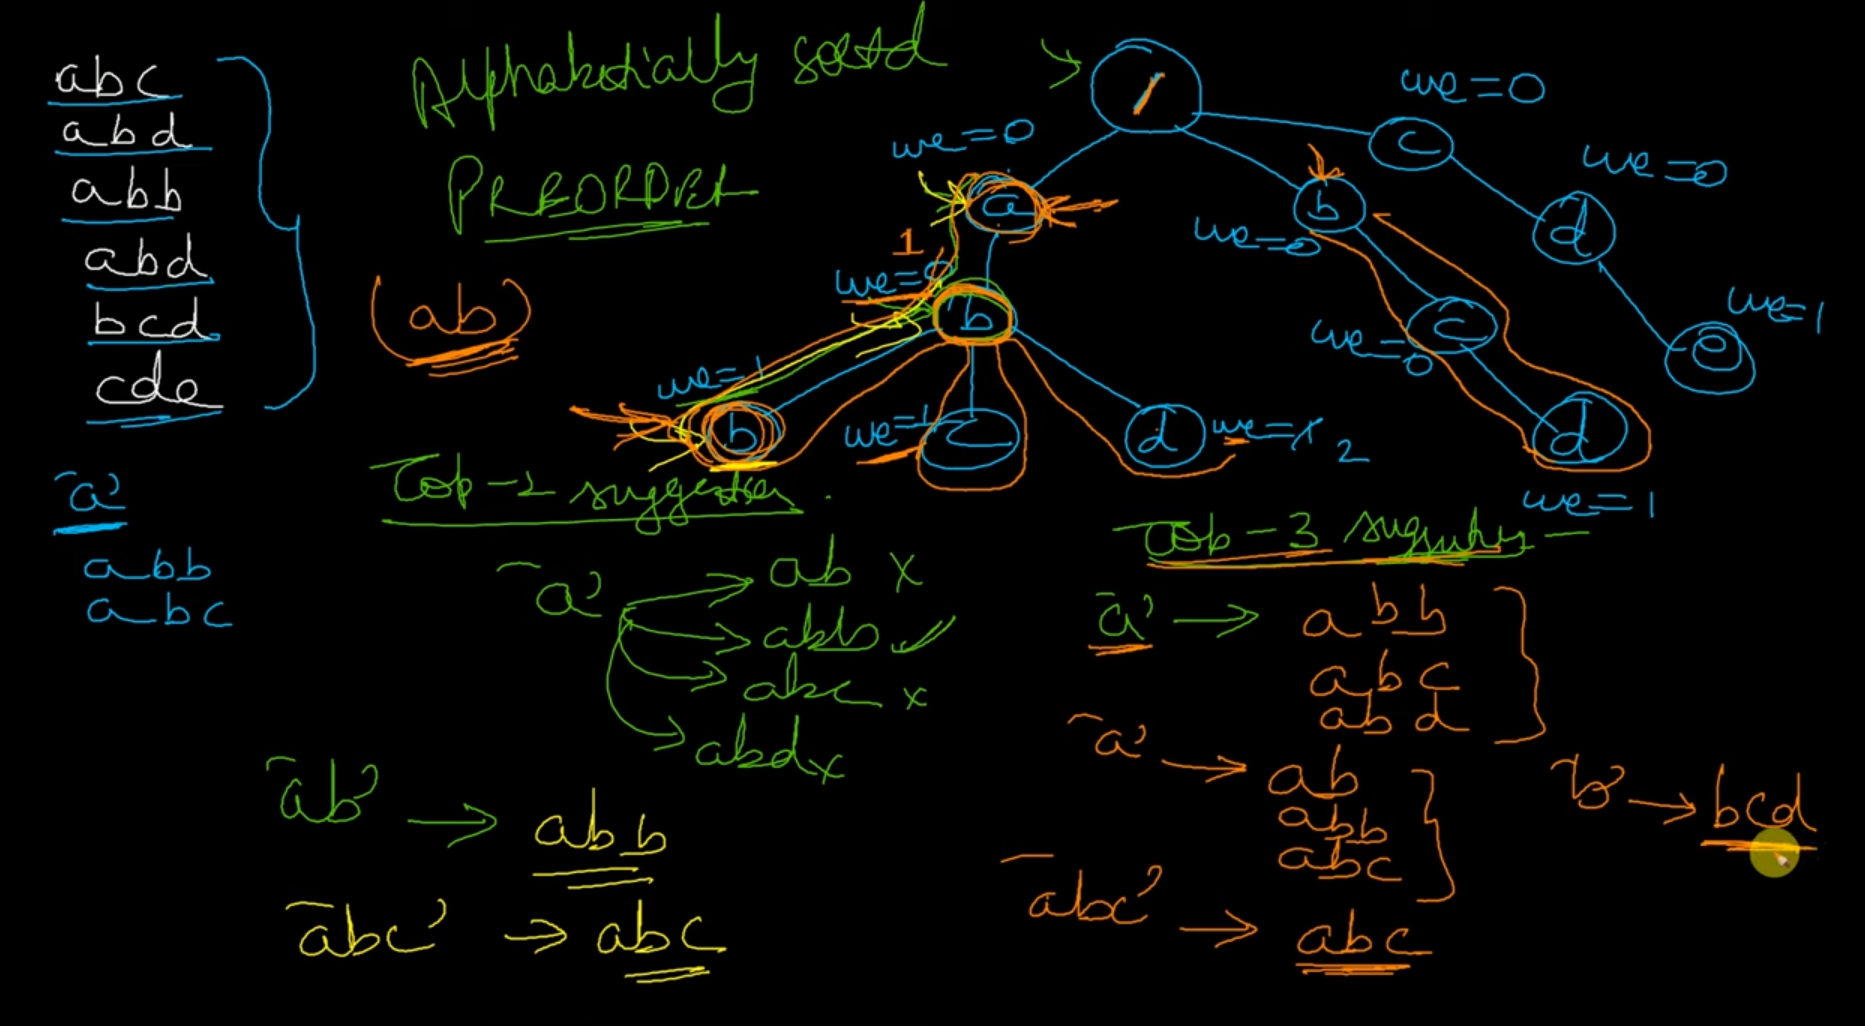 abc
abd
abb
abd
bcd
cde
'a'
abb
abc
Alphabetially sorted
PREORDER
(ab)
/
we=0
c
we=0
d
we=1
e
we=0
a
b
we=0
c
we=0
d
we=1
1
we=0
b
we=1
b
we=1
c
d
we=1 2
Top-2 suggestion.
'a'
ab x
abb ✓
abc x
abd x
'ab' → abb
'abc' → abc
Top-3
'a' → abb
abc
abd
'a' → ab
abb
abc
'abc' → abc
'b' → bcd